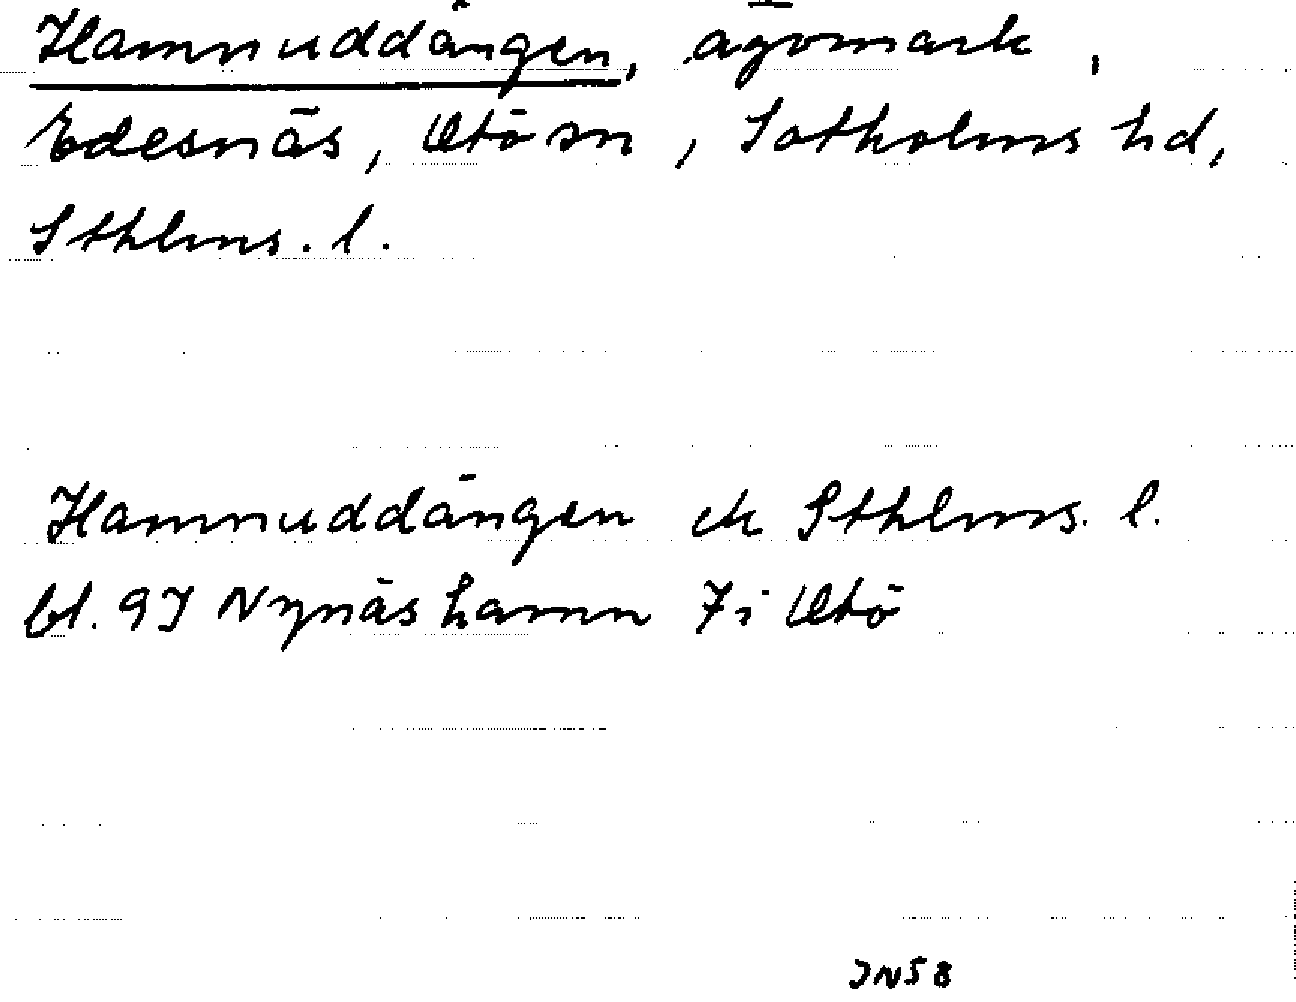 Hamnuddängen, ägomark,
Edesnäs, Utö sn, Sotholms hd,
Sthlms. l.
Hamnuddängen ek Sthlms. l.
bl. 97 Nynäshamn 7i Utö
JN58